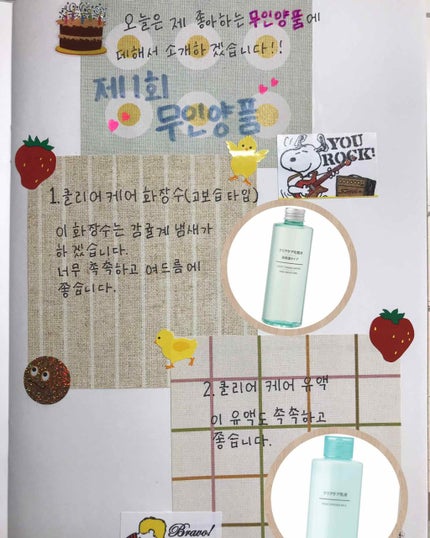 오늘은 제 좋아하는 무인양품에
대해서 소개하겠습니다!!
제1회
무인양품
YOU
ROCK!
1. 클리어 케어 화장수(고보습 타입)
이 화장수는 감귤계 냄새가
하겠습니다.
너무 촉촉하고 여드름에
좋습니다.
クリアケア化粧水
高保湿タイプ
2. 클리어 케어 유액
이 유액도 촉촉하고
좋습니다.
クリアケア乳液
Bravo!